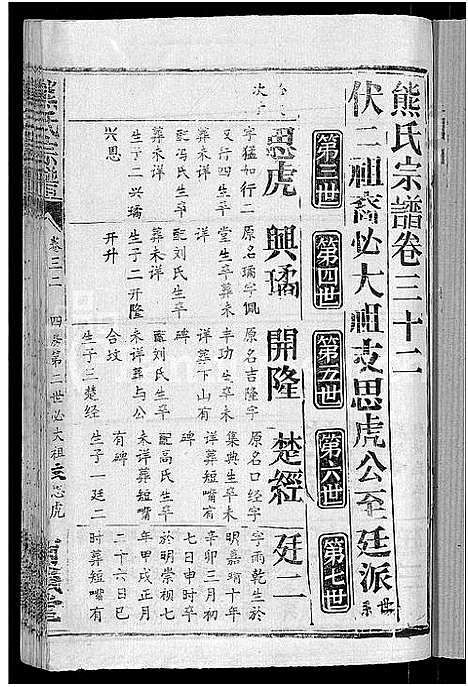 熊氏宗譜卷三十二
伏二祖裔必大祖支思虎公至廷派世系
第三世
第四世
第五世
第六世
第七世
思虎
字猛如行二
又行四生卒
葬未详
配冯氏生卒
葬未详
生子二兴璚
兴恩
興璚
原名璚字佩
堂生卒葬未
详
配刘氏生卒
葬未详
生子二开隆
开升
開隆
原名吉隆字
丰功生卒未
详葬下山有
碑
配刘氏生卒
未详葬与公
合坟
生子二楚经
楚經
原名口经字
集典生卒未
详葬短嘴有
碑
配高氏生卒
未详葬短嘴
有碑
生子一廷二
廷二
字雨乾生於
明嘉靖十年
辛卯三月初
七日申时卒
於明崇祯七
年甲戌正月
二十六日巳
时葬短嘴有
熊氏宗譜
卷三二
四房第三世必大祖支思虎